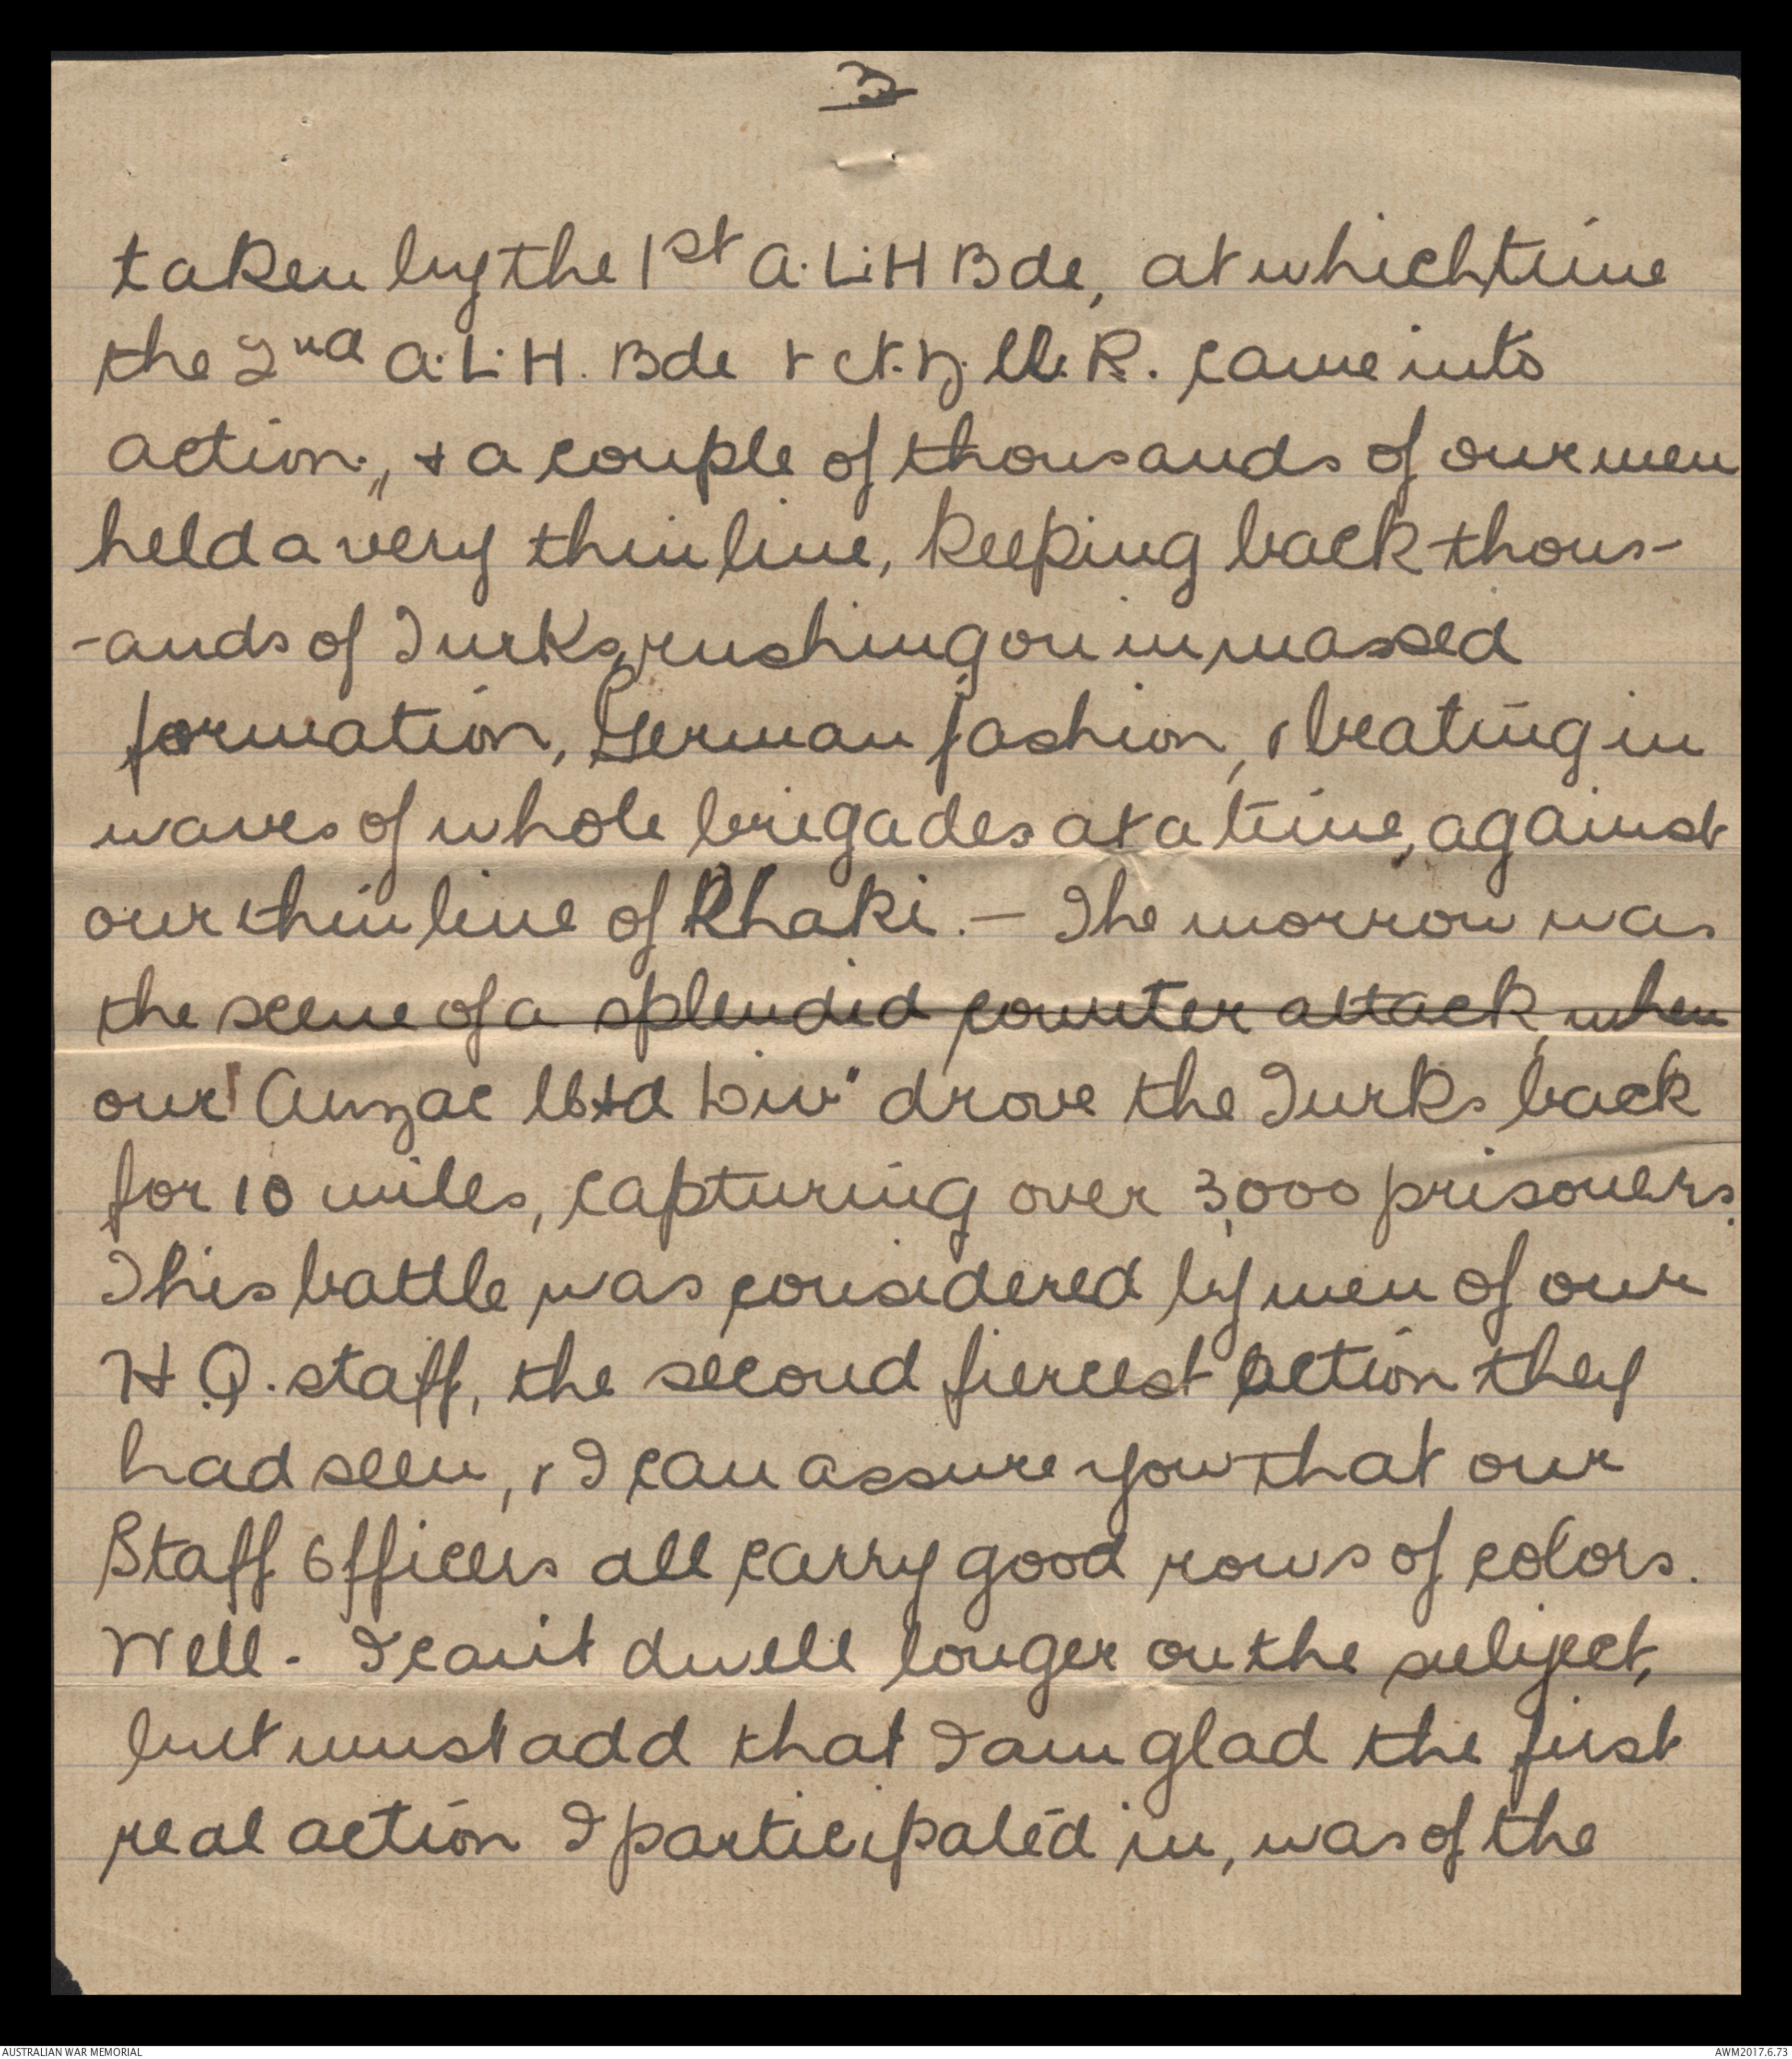 3
taken by the 1st A.L.H Bde, at which time
the 2nd A.L.H. Bde & N.Z.M.R. came into
action, & a couple of thousands of our men
held a very thin line, keeping back thous-
-ands of Turks, rushing on in massed
formation, German fashion, & beating in
waves of whole brigades at a time, against
our thin line of Khaki. - The morrow was
the scene of a splendid counter attack, when
our "Anzac Mtd Div" drove the Turks back
for 10 miles, capturing over 3,000 prisoners.
This battle was considered by men of our
H.Q. staff, the second fiercest action they
had seen, & I can assure you that our
Staff Officers all carry good rows of colors.
Well - I can't dwell longer on the subject,
but must add that I am glad the first
real action I participated in, was of the
AUSTRALIAN WAR MEMORIAL
AWM2017.6.73